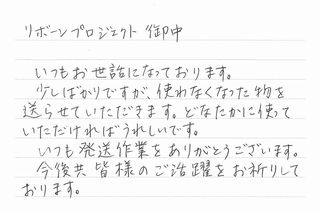 リボーンプロジェクト 御中
いつもお世話になっております。
少しばかりですが、使わなくなった物を
送らせていただきます。どなたかに使って
いただければうれしいです。
いつも発送作業をありがとうございます。
今後共皆様のご活躍をお祈りして
おります。